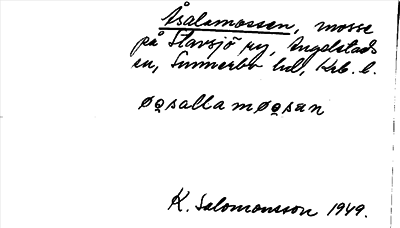 Åsalamossen, mosse
på Stavsjö ry, Angelstads
sn, Sunnerbo hd, Krb. l.
øo̲salla møo̲sən
K. Salomonsson 1949.